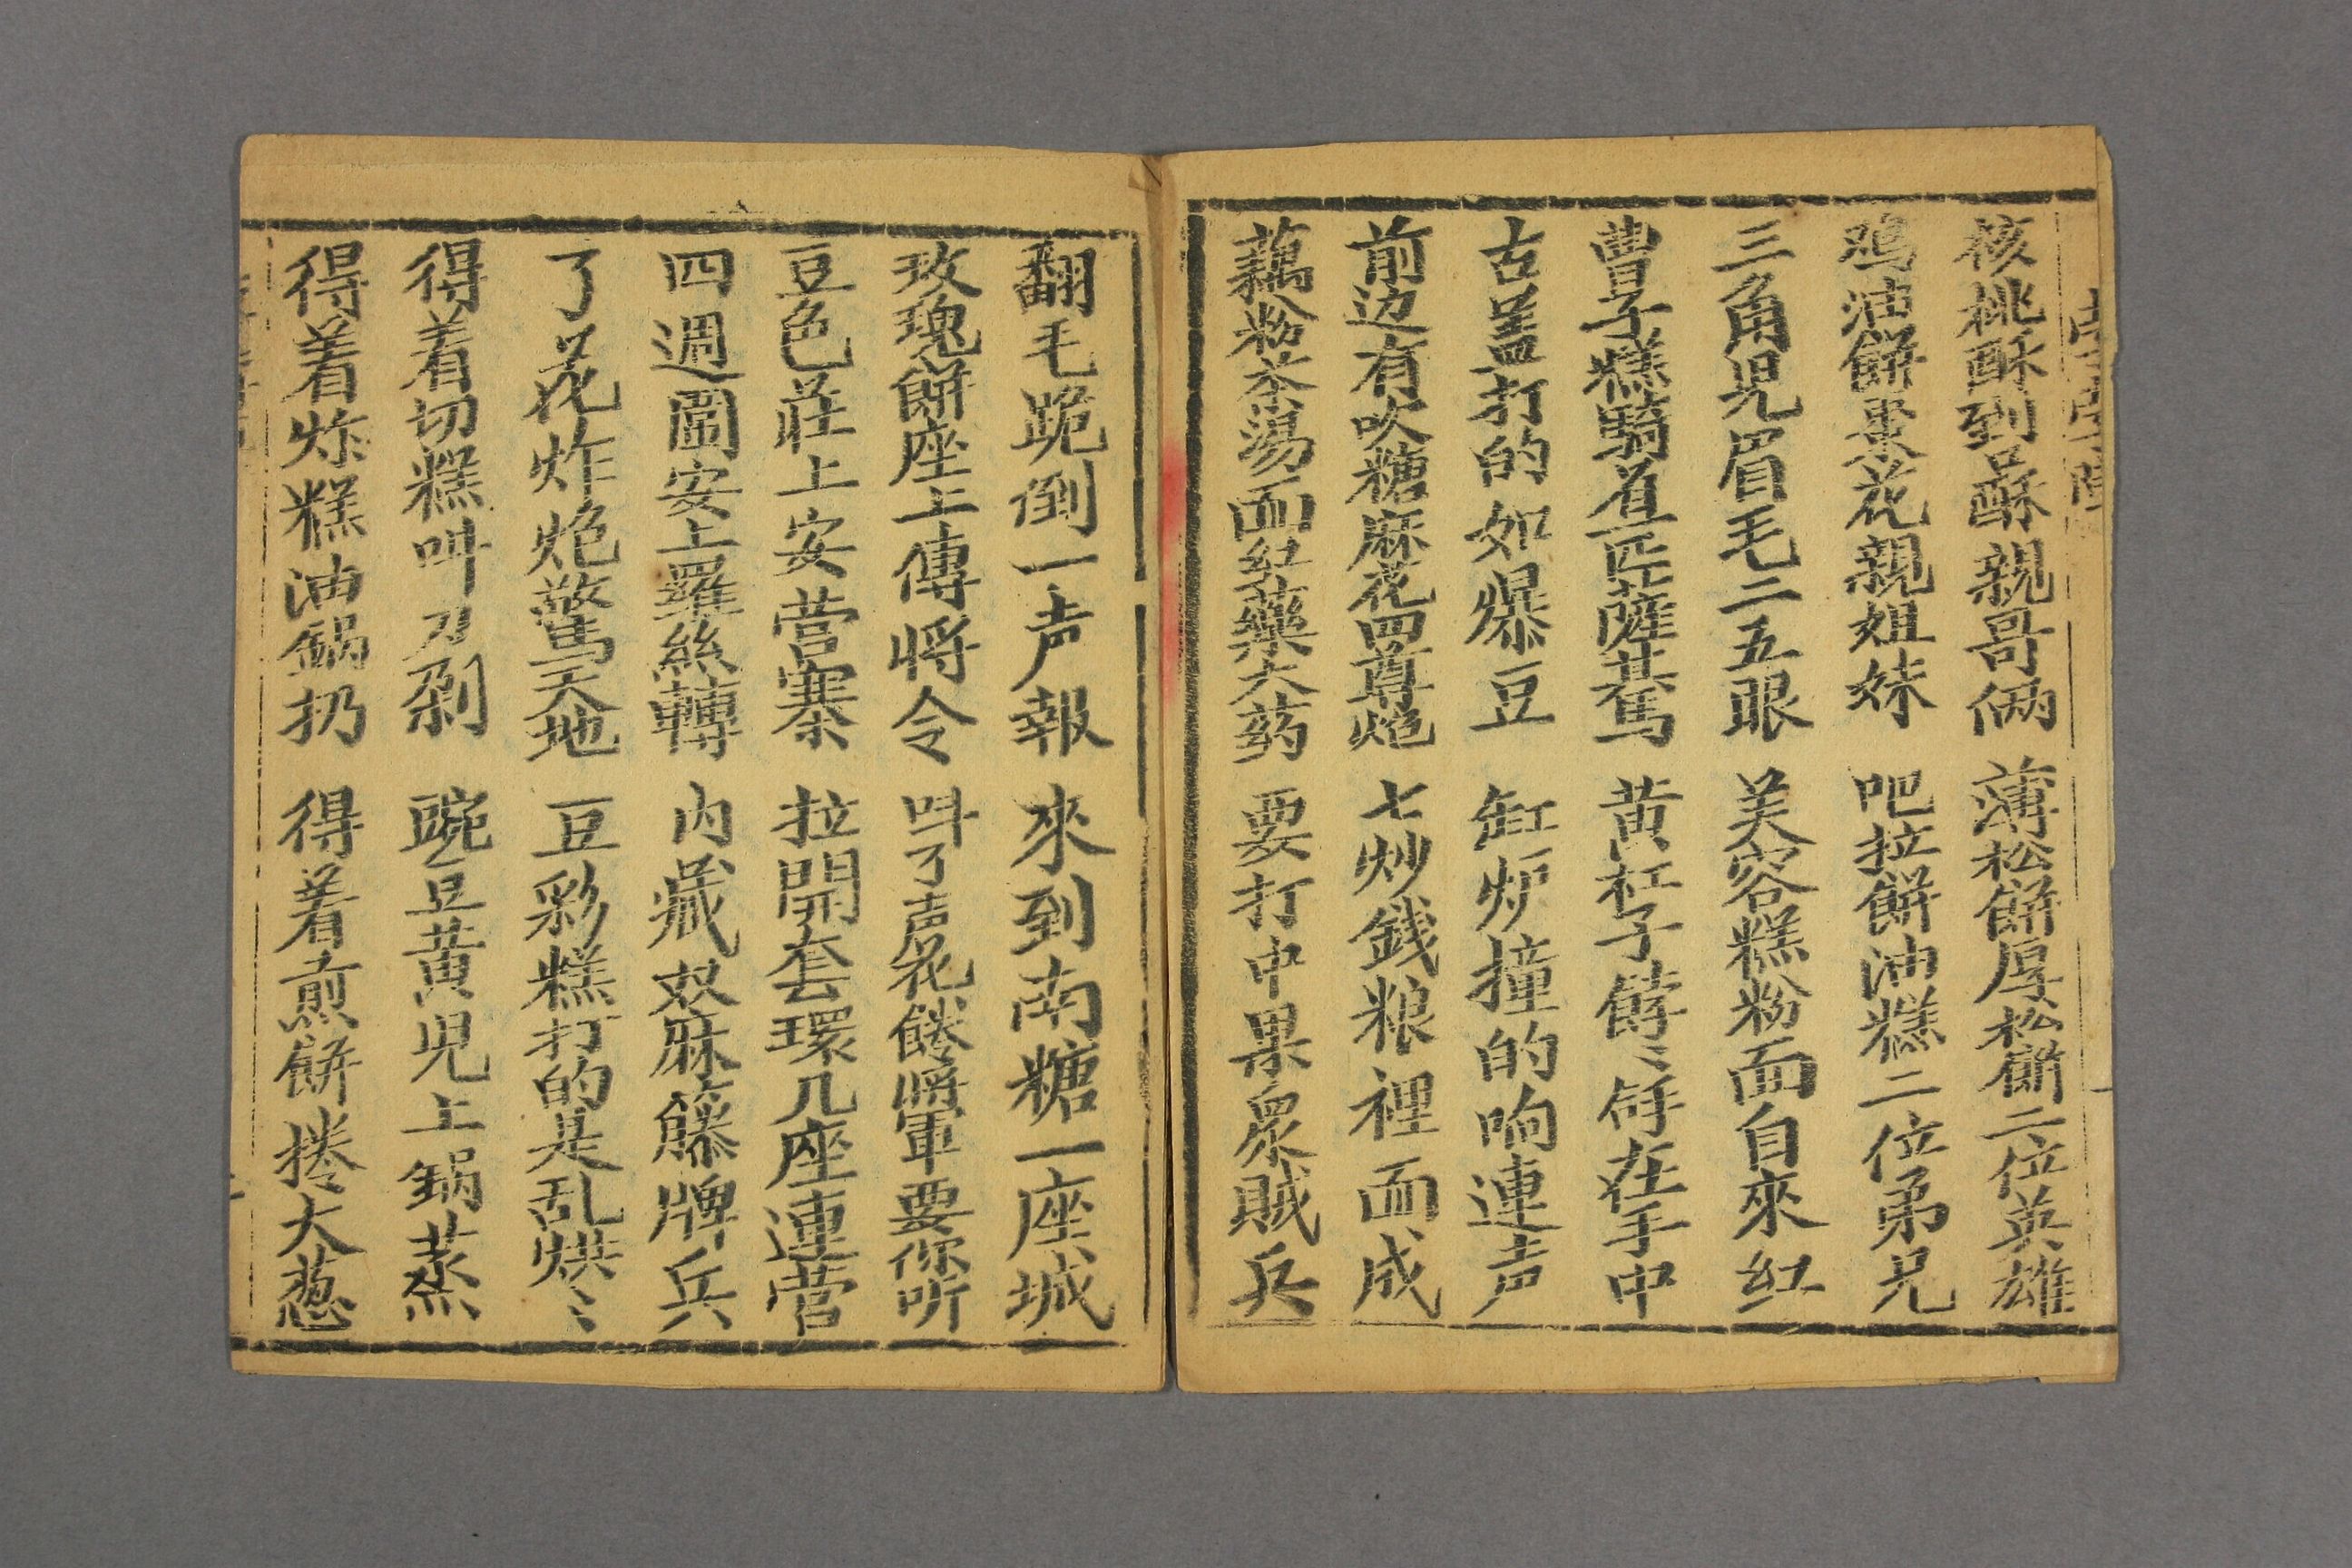 核桃酥到口酥親哥倆 薄松餅厚松餅二位英雄
鸡油餅棗花親姐妹 吧拉餅油糕二位弟兄
三角児眉毛二五眼 美容糕粉面自來红
曹子糕騎着一匹薩其馬 黄杠子餑〻舒在手中
古盖打的如爆豆 缸炉撞的响連声
前边有吹糖麻花四尊炮 七炒銭粮裡面成
藕粉茶湯面红藥大药 要打中果眾賊兵
翻毛跪倒一声報 來到南糖一座城
玫瑰餅座上傳将令 呌了声花餞將軍要你听
豆色莊上安营寨 拉開套環几座連营
四週圍安上羅絲轉 内藏双麻籐牌兵
了花炸炮驚天地 豆彩糕打的是乱烘〻
得着切糕呌刀剁 豌豆黄児上鍋蒸
得着炸糕油鍋扔 得着煎餅捲大葱